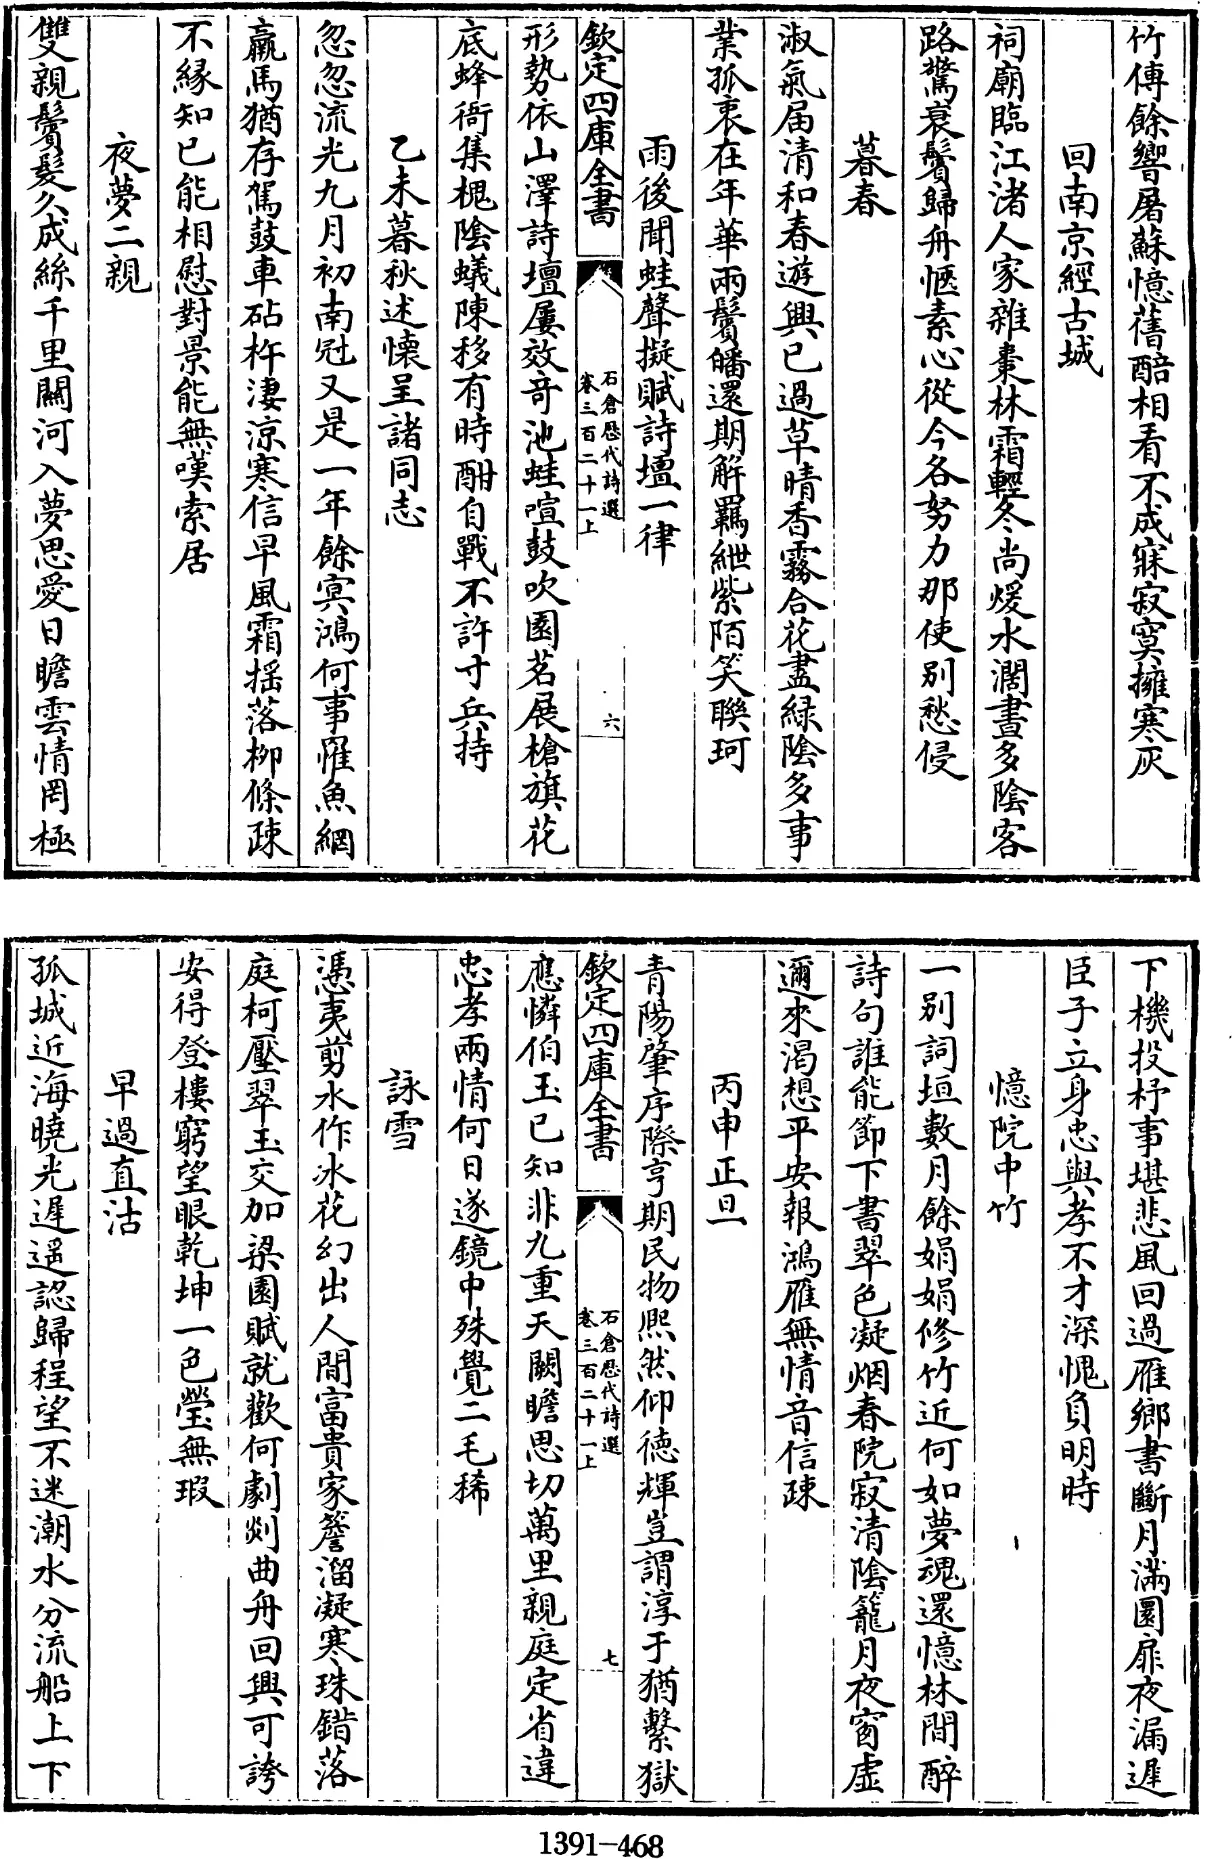 竹傳餘響屠蘇憶舊醅相看不成寐寂寞擁寒灰
回南京經古城
祠廟臨江渚人家雜棗林霜輕冬尚煖水濶晝多陰客
路驚衰鬢歸舟愜素心從今各努力那使別愁侵
暮春
淑氣届清和春遊興已過草晴香霧合花盡緑陰多事
業孤衷在年華兩鬢皤還期解羈紲紫陌笑聯珂
雨後聞蛙聲擬賦詩壇一律
欽定四庫全書
石倉歷代詩選
卷三百二十一上
六
形勢依山澤詩壇屢效奇池蛙喧鼓吹園茗展槍旗花
底蜂衙集槐陰蟻陳移有時酣自戰不許寸兵持
乙未暮秋述懷呈諸同志
忽忽流光九月初南冠又是一年餘㝠鴻何事罹魚網
羸馬猶存駕鼓車砧杵凄涼寒信早風霜揺落柳條疎
不緣知已能相慰對景能無嘆索居
夜夢二親
雙親鬢髮久成絲千里關河入夢思愛日瞻雲情罔極
下機投杼事堪悲風回過雁鄉書斷月滿圜扉夜漏遲
臣子立身忠與孝不才深愧負明時
憶院中竹
一别詞垣數月餘娟娟修竹近何如夢魂還憶林間醉
詩句誰能節下書翠色凝烟春院寂清陰籠月夜窗虚
邇來渴想平安報鴻雁無情音信疎
丙申正旦
青陽肇序際亨期民物熙然仰德輝豈謂淳于猶繫獄
欽定四庫全書
石倉歷代詩選
卷三百二十一上
七
應憐伯玉已知非九重天闕瞻思切萬里親庭定省違
忠孝兩情何日遂鏡中殊覺二毛稀
詠雪
馮夷剪水作冰花幻出人間富貴家簷溜凝寒珠錯落
庭柯壓翠玉交加梁園賦就歡何劇剡曲舟回興可誇
安得登樓窮望眼乾坤一色瑩無瑕
早過直沽
孤城近海曉光遲遥認歸程望不迷潮水分流船上下
1391-468